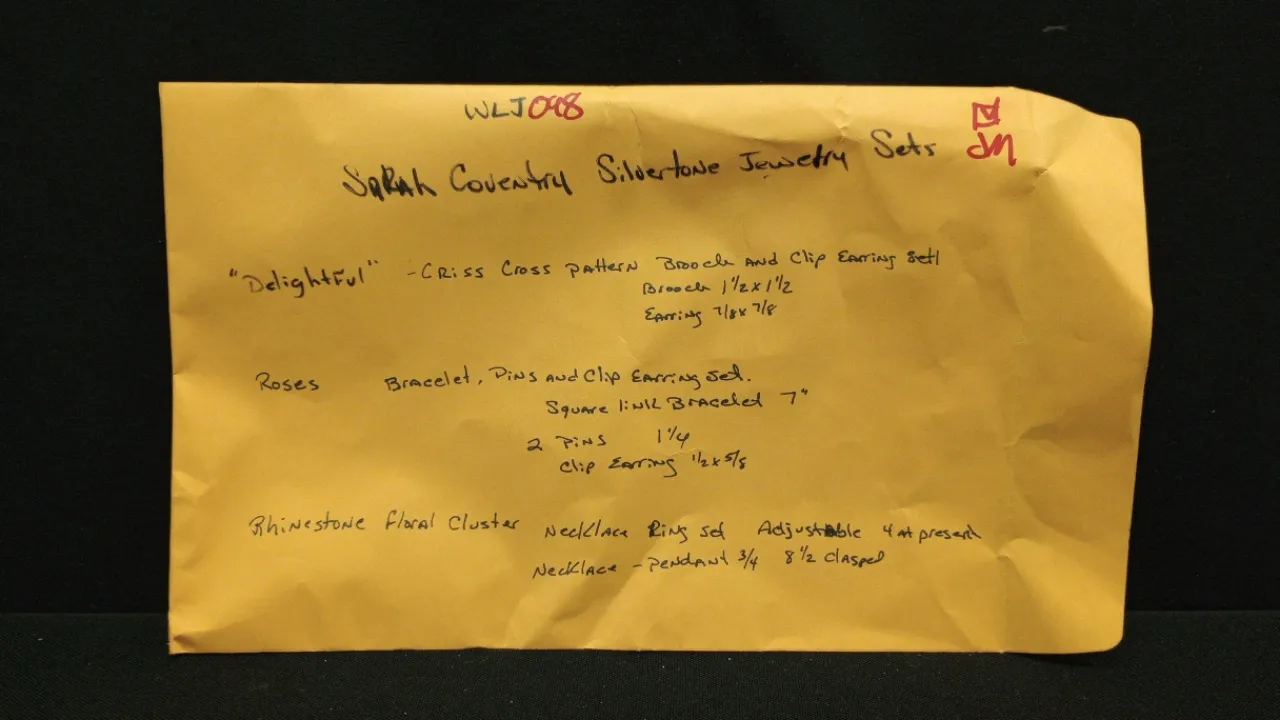 WLJ098
JM
Sarah Coventry Silvertone Jewelry Sets
"Delightful" - Criss Cross pattern Brooch and Clip Earring set
Brooch 1 1/2 x 1 1/2
Earring 7/8 x 7/8
Roses Bracelet, Pins and Clip Earring set.
Square link Bracelet 7"
2 Pins 1 1/4
Clip Earring 1/2 x 5/8
Rhinestone Floral Cluster Necklace Ring set Adjustable 4 at present
Necklace - pendant 3/4 8 1/2 clasped